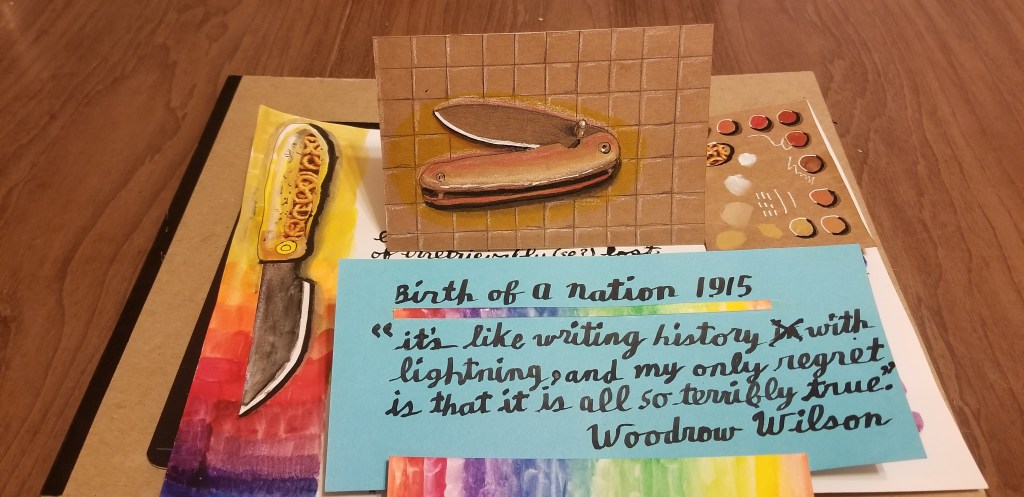 of irretrievably (se?) lost
Birth of a nation 1915
"it's like writing history with
lightning, and my only regret
is that it is all so terribly true."
Woodrow Wilson